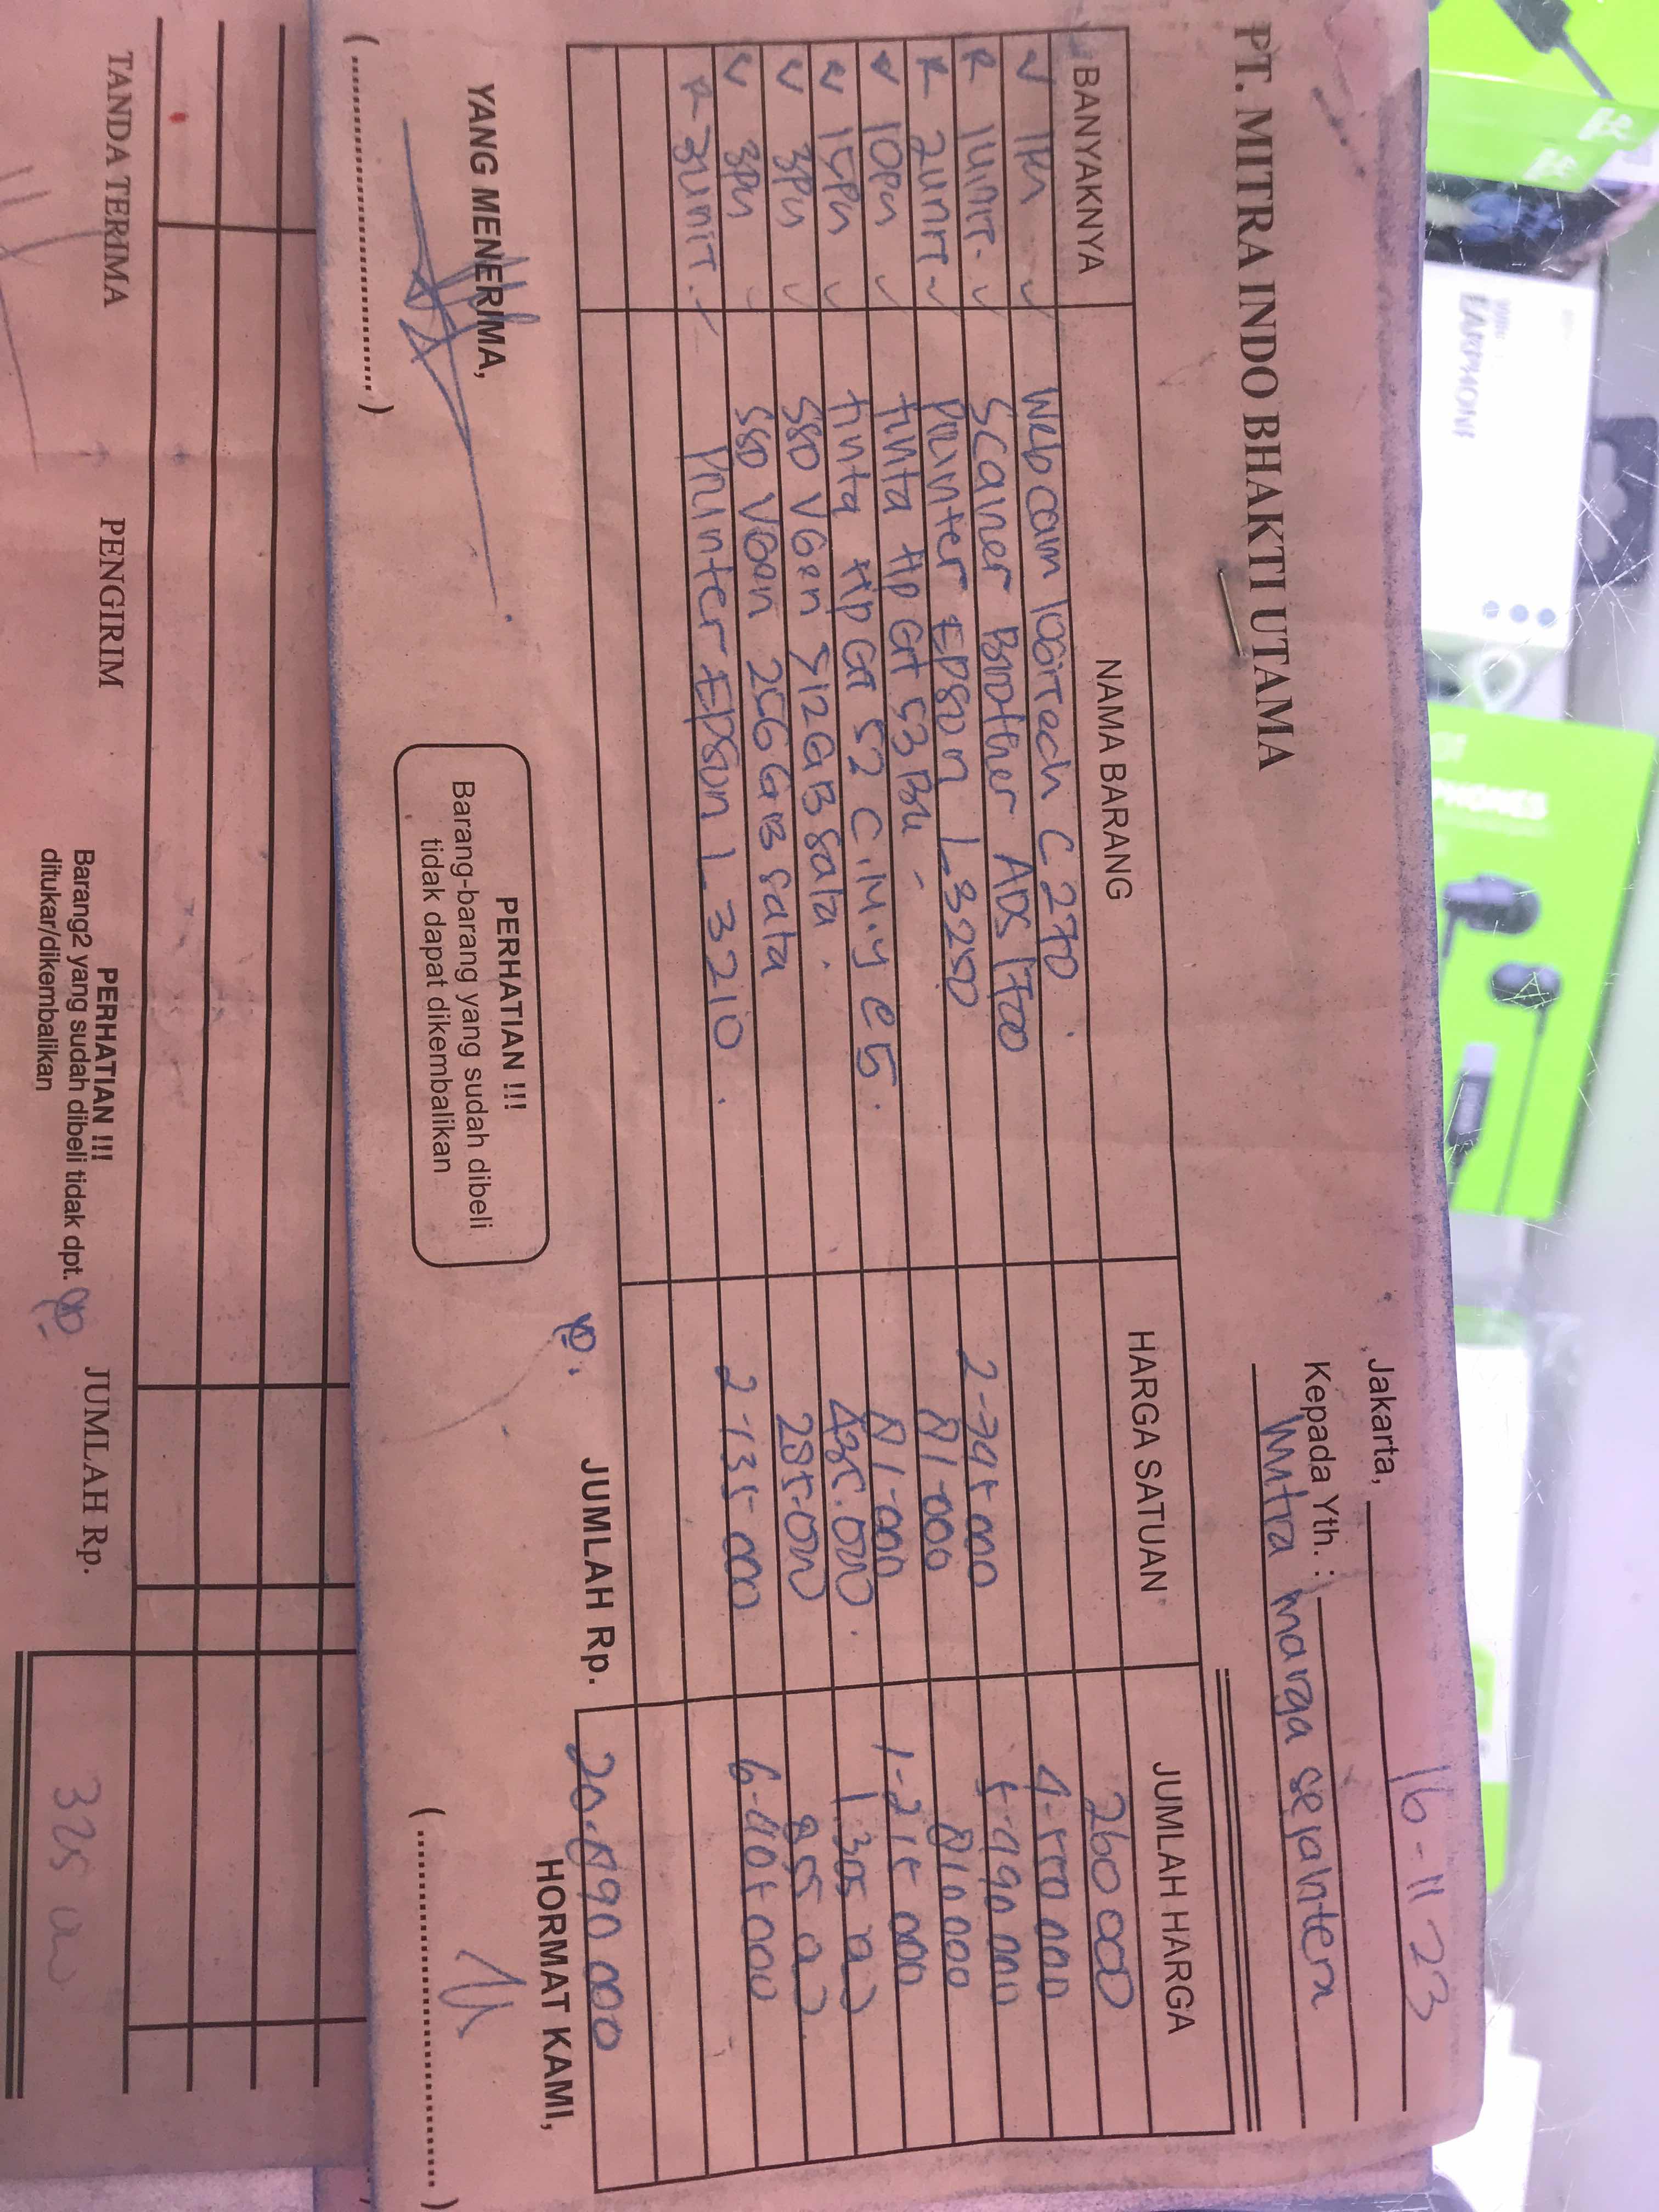 PT. MITRA INDO BHAKTI UTAMA
Jakarta, 16-11-23
Kepada Yth. :
Mitra marga sejahtera
BANYAKNYA NAMA BARANG HARGA SATUAN JUMLAH HARGA
Webcam logitech C 270 . 260 000
1 unit Scaner Brother ADS 1700
2 unit Printer EPSON L3250 2-745 000 5-490 000
10 pcs tinta Hp GT 53 BK 81-000 810 000
15 pcs tinta Hp GT 52 C.M.y @5. 81-000 1-215 000
3 pcs SSD VGen 512 GB Sata. 435.000 1.305
3 pcs SSD VGen 256 GB Sata 285.000
3 unit Printer EPSON L 3210 . 2-135 000 6-405 000
JUMLAH Rp. 20.090 000
YANG MENERIMA,
PERHATIAN !!!
Barang-barang yang sudah dibeli
tidak dapat dikembalikan
HORMAT KAMI,
TANDA TERIMA
PENGIRIM
PERHATIAN !!!
Barang2 yang sudah dibeli tidak dpt.
ditukar/dikembalikan
JUMLAH Rp.
325
EARPHONE